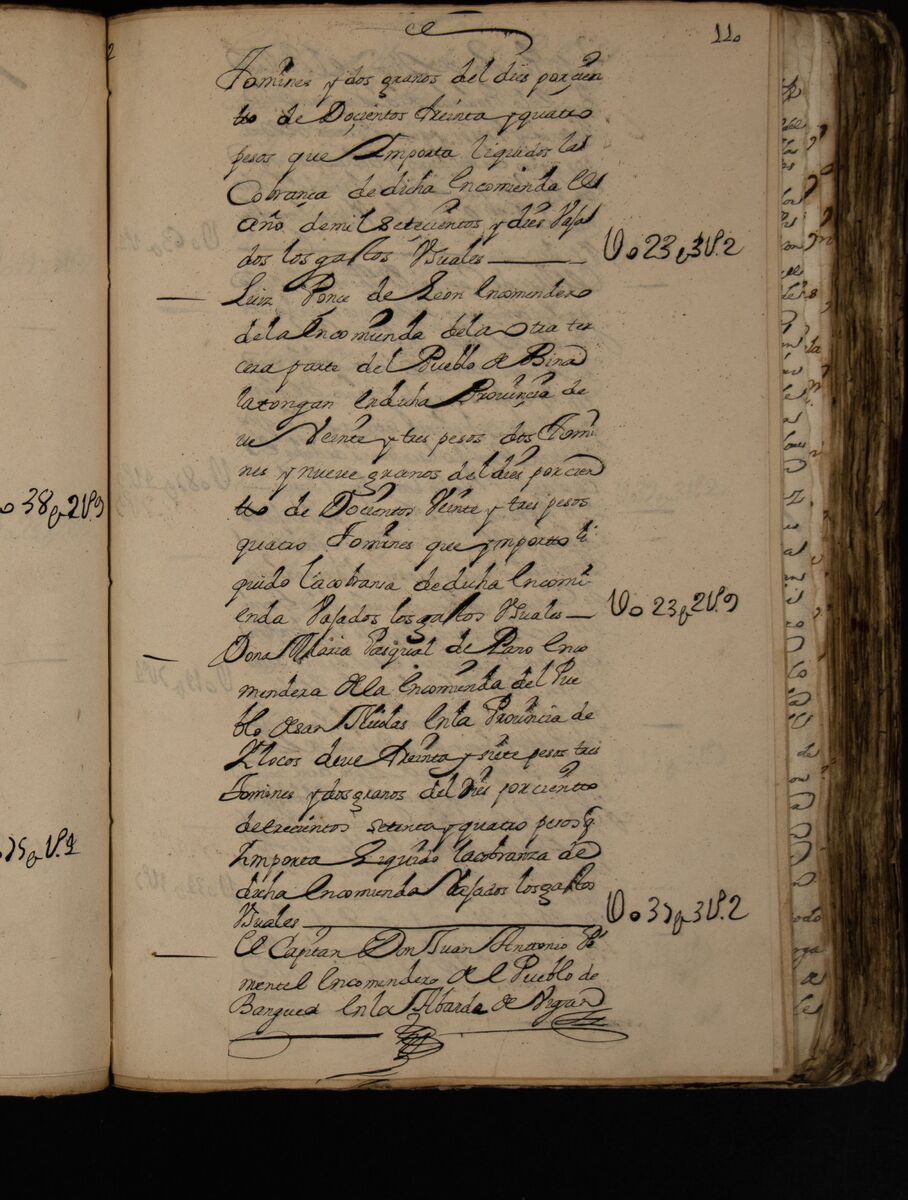 110
tomines y dos granos del dies por çien
tto de Doçientos treinta y quatro
pesos que Ymporta liquidos la
Cobrança de dicha Encomienda el
año de mil setecientos y dies bajal
dos los gastos Vsuales
U o 23 p 3 U. 2
Luiz Ponçe de Leon Encomendero
de la Encomienda de la otra ter
cera parte del Pueblo de Bina
latongan En dicha Prouinçia de
ue Veinte y tres pesos dos tomi
nes y nueve granos del dies por cien
tto de Docientos Veinte y tres pesos
quatro tomines que ymportto li
quido la cobransa de dicha Encomi
enda bajados los gastos Vsuales
U o 23 p 2 U. 9
Dona Maria Pasqual de Paro Enco
mendera de la Encomienda del Pue
blo de san Nicolas En la Prouincia de
Ylocos deve treinta y siete pesos tres
tomines y dos granos del dies por cientto
de trecientos setenta y quatro pesos q
Ymporta Liquido la cobranza de
dicha Encomienda bajados los gastos
Vsuales
U o 37 p 3 U. 2
El Capitan Don Juan Antonio Pi
mentel Encomendero de el Pueblo de
Bangued En la Abarda de Vigan
o 38 p 2 U. 9